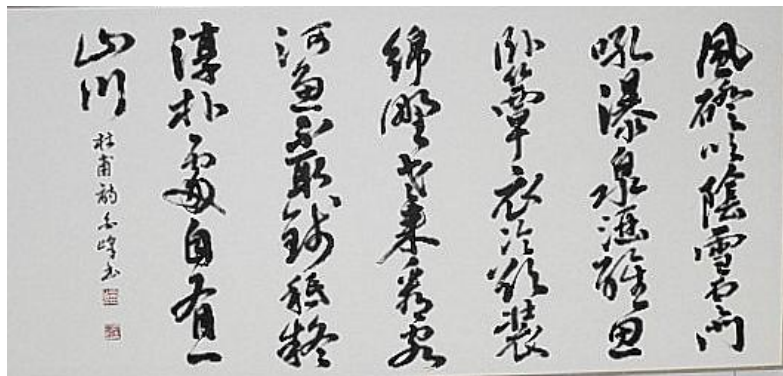 風磴吹陰雪雲門
吼瀑泉酒醒思
臥簟衣冷欲裝
綿野老來看客
河魚不取錢秖疑
淳朴處自有一
山川
杜甫詩峰書